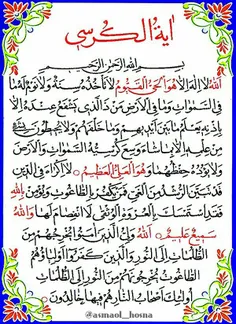 آیة الکرسي
بسم الله الرحمن الرحیم
الله لا اله الا هو الحي القیوم لا تأخذه سنة ولا نوم له ما
في السموات وما في الأرض من ذا الذي یشفع عنده الا
باذنه یعلم ما بین أیدیهم وما خلفهم ولا یحیطون بشيء
من علمه الا بما شاء وسع کرسیه السموات والأرض
ولا یؤده حفظهما وهو العلي العظیم لا اکراه في الدین
قد تبین الرشد من الغي فمن یکفر بالطاغوت ویؤمن بالله
فقد استمسک بالعروة الوثقی لا انفصام لها والله
سمیع علیم الله ولي الذین آمنوا یخرجهم من
الظلمات الی النور والذین کفروا أولیاؤهم
الطاغوت یخرجونهم من النور الی الظلمات
أولئک أصحاب النار هم فیها خالدون
@asmaol_hosna